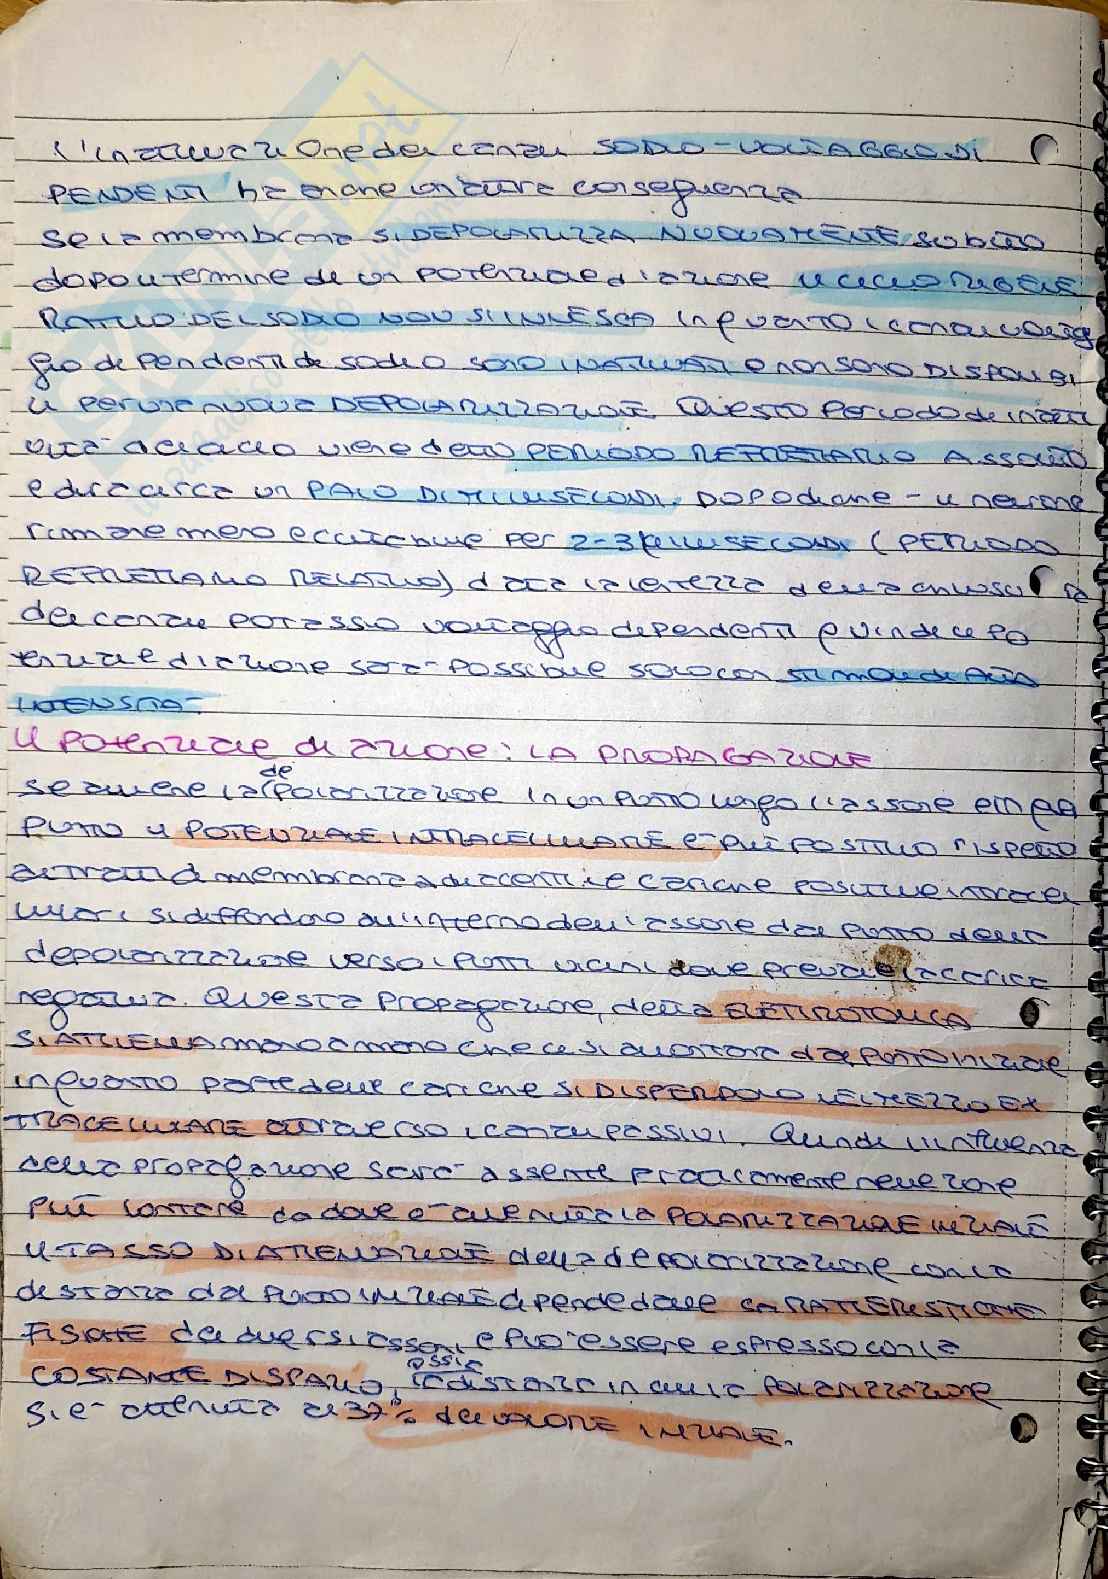 L'inattivazione dei canali SODIO-VOLTAGGIO DI
PENDENTI ha anche un'altra conseguenza
se la membrana SI DEPOLARIZZA NUOVAMENTE subito
dopo il termine di un potenziale d'azione IL CICLO RIGENE
RATIVO DEL SODIO NON SI INNESCA in quanto i canali voltag
gio dipendenti di sodio sono INATTIVATI e non sono DISPONIBI
LI per una nuova DEPOLARIZZAZIONE. Questo periodo di inatti
vità del ciclo viene detto PERIODO REFRETTARIO ASSOLUTO
e dura circa un PAIO DI MILLISECONDI. Dopodiche - il neurone
rimane meno eccitabile per 2-3 MILLISECONDI (PERIODO
REFRETTARIO RELATIVO) data la lentezza della chiusura
dei canali potassio voltaggio dipendenti quindi il po
tenziale di azione sarà possibile solo con stimoli di ALTA
INTENSITÀ.
Il potenziale di azione: LA PROPAGAZIONE
se avviene la depolarizzazione in un punto lungo l'assone in quel
punto il POTENZIALE INTRACELLULARE è più POSITIVO rispetto
ai tratti di membrana adiacenti. Le cariche positive intracel
lulari si diffondono all'interno dell'assone dal punto della
depolarizzazione verso i punti vicini dove prevale la carica
negativa. Questa propagazione, detta ELETTROTONICA
SI ATTENUA mano a mano che ci si allontana dal punto iniziale
in quanto parte delle cariche SI DISPERDONO NEL MEZZO EX
TRACELLULARE attraverso i canali passivi. Quindi l'influenza
della propagazione sarà assente praticamente nelle zone
più lontane da dove è avvenuta la POLARIZZAZIONE INIZIALE
IL TASSO DI ATTENUAZIONE della depolarizzazione con la
distanza dal punto INIZIALE dipende dalle CARATTERISTICHE
FISICHE dei diversi assoni, e può essere espresso con la
COSTANTE DI SPAZIO, ossia la distanza in cui la POLARIZZAZIONE
si è attenuata al 37% del VALORE INIZIALE.